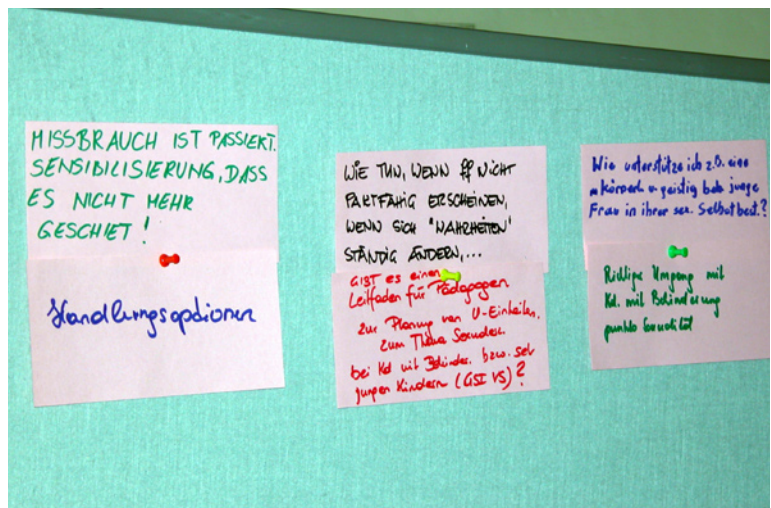 MISSBRAUCH IST PASSIERT.
SENSIBILISIERUNG, DASS
ES NICHT MEHR
GESCHIET!
Handlungsoptionen
WIE TUN, WENN ff NICHT
PAKTFÄHIG ERSCHEINEN,
WENN SICH "WAHRHEITEN"
STÄNDIG ÄNDERN,...
GIBT es einen
Leitfaden für Pädagogen
zur Planung von U-Einheiten
zum Thema
bei Kd mit Behinder. bzw. sehr
jungen Kindern (GSI VS)?
Wie unterstütze ich z.B. eine
körperl. u. geistig beh. junge
Frau in ihrer sex. Selbstbest.?
Richtige Umgang mit
Kd. mit Behinderung
punkto Sexualität